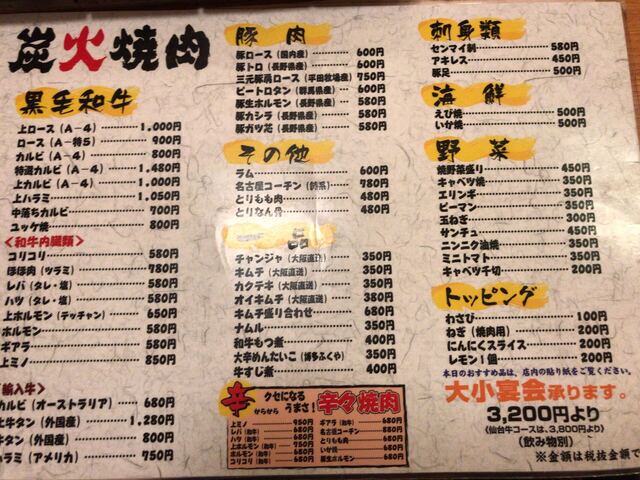 炭火焼肉
黒毛和牛
上ロース(A-4) 1.000円
ロース(A-特5) 900円
カルビ(A-4) 800円
特選カルビ(A-4) 1.480円
上カルビ(A-4) 1.000円
上ハラミ 1.050円
中落ちカルビ 700円
ユッケ焼 800円
<和牛内臓類>
コリコリ 580円
ほほ肉(ツラミ) 780円
レバ(タレ・塩) 580円
ハツ(タレ・塩) 580円
上ホルモン(テッチャン) 650円
ホルモン 580円
ギアラ 580円
上ミノ 850円
輸入牛》
カルビ(オーストラリア) 680円
上牛タン(外国産) 1.280円
牛タン(外国産) 800円
ハラミ(アメリカ) 750円
豚肉
豚ロース(国内産) 600円
豚トロ(長野県産) 600円
三元豚肩ロース(平田牧場産) 750円
ピートロタン(群馬県産) 600円
豚生ホルモン(長野県産) 580円
豚カシラ(長野県産) 580円
豚ガツ芯(長野県産) 580円
その他
ラム 600円
名古屋コーチン(鈴系) 780円
とりもも肉 480円
とりなん骨 480円
一品
チャンジャ(大阪直送) 350円
キムチ(大阪直送) 350円
カクテキ(大阪直送) 350円
オイキムチ(大阪直送) 380円
キムチ盛り合わせ 680円
ナムル 350円
和牛もつ煮 400円
大辛めんたいこ(博多ふくや) 350円
牛すじ煮 400円
辛 からから クセになるうまさ! 辛々焼肉
上ミノ 950円
レバ(和牛) 680円
ハツ(和牛) 680円
上ホルモン(和牛) 750円
ホルモン(和牛) 680円
コリコリ(和牛) 680円
ギアラ(和牛) 680円
名古屋コーチン 880円
とりもも肉 680円
いか焼 680円
豚生ホルモン 680円
刺身類
センマイ刺 580円
アキレス 450円
豚足 500円
海鮮
えび焼 500円
いか焼 500円
野菜
焼野菜盛り 450円
キャベツ焼 350円
エリンギ 350円
ピーマン 350円
玉ねぎ 300円
サンチュ 450円
ニンニク油焼 350円
ミニトマト 350円
キャベツ千切 200円
トッピング
わさび 100円
ねぎ(焼肉用) 200円
にんにくスライス 200円
レモン1個 200円
本日のおすすめ品は、店内の貼り紙をご覧ください。
大小宴会承ります。
3,200円より
(仙台牛コースは、3,800円より)
(飲み物別)
※金額は税抜金額で